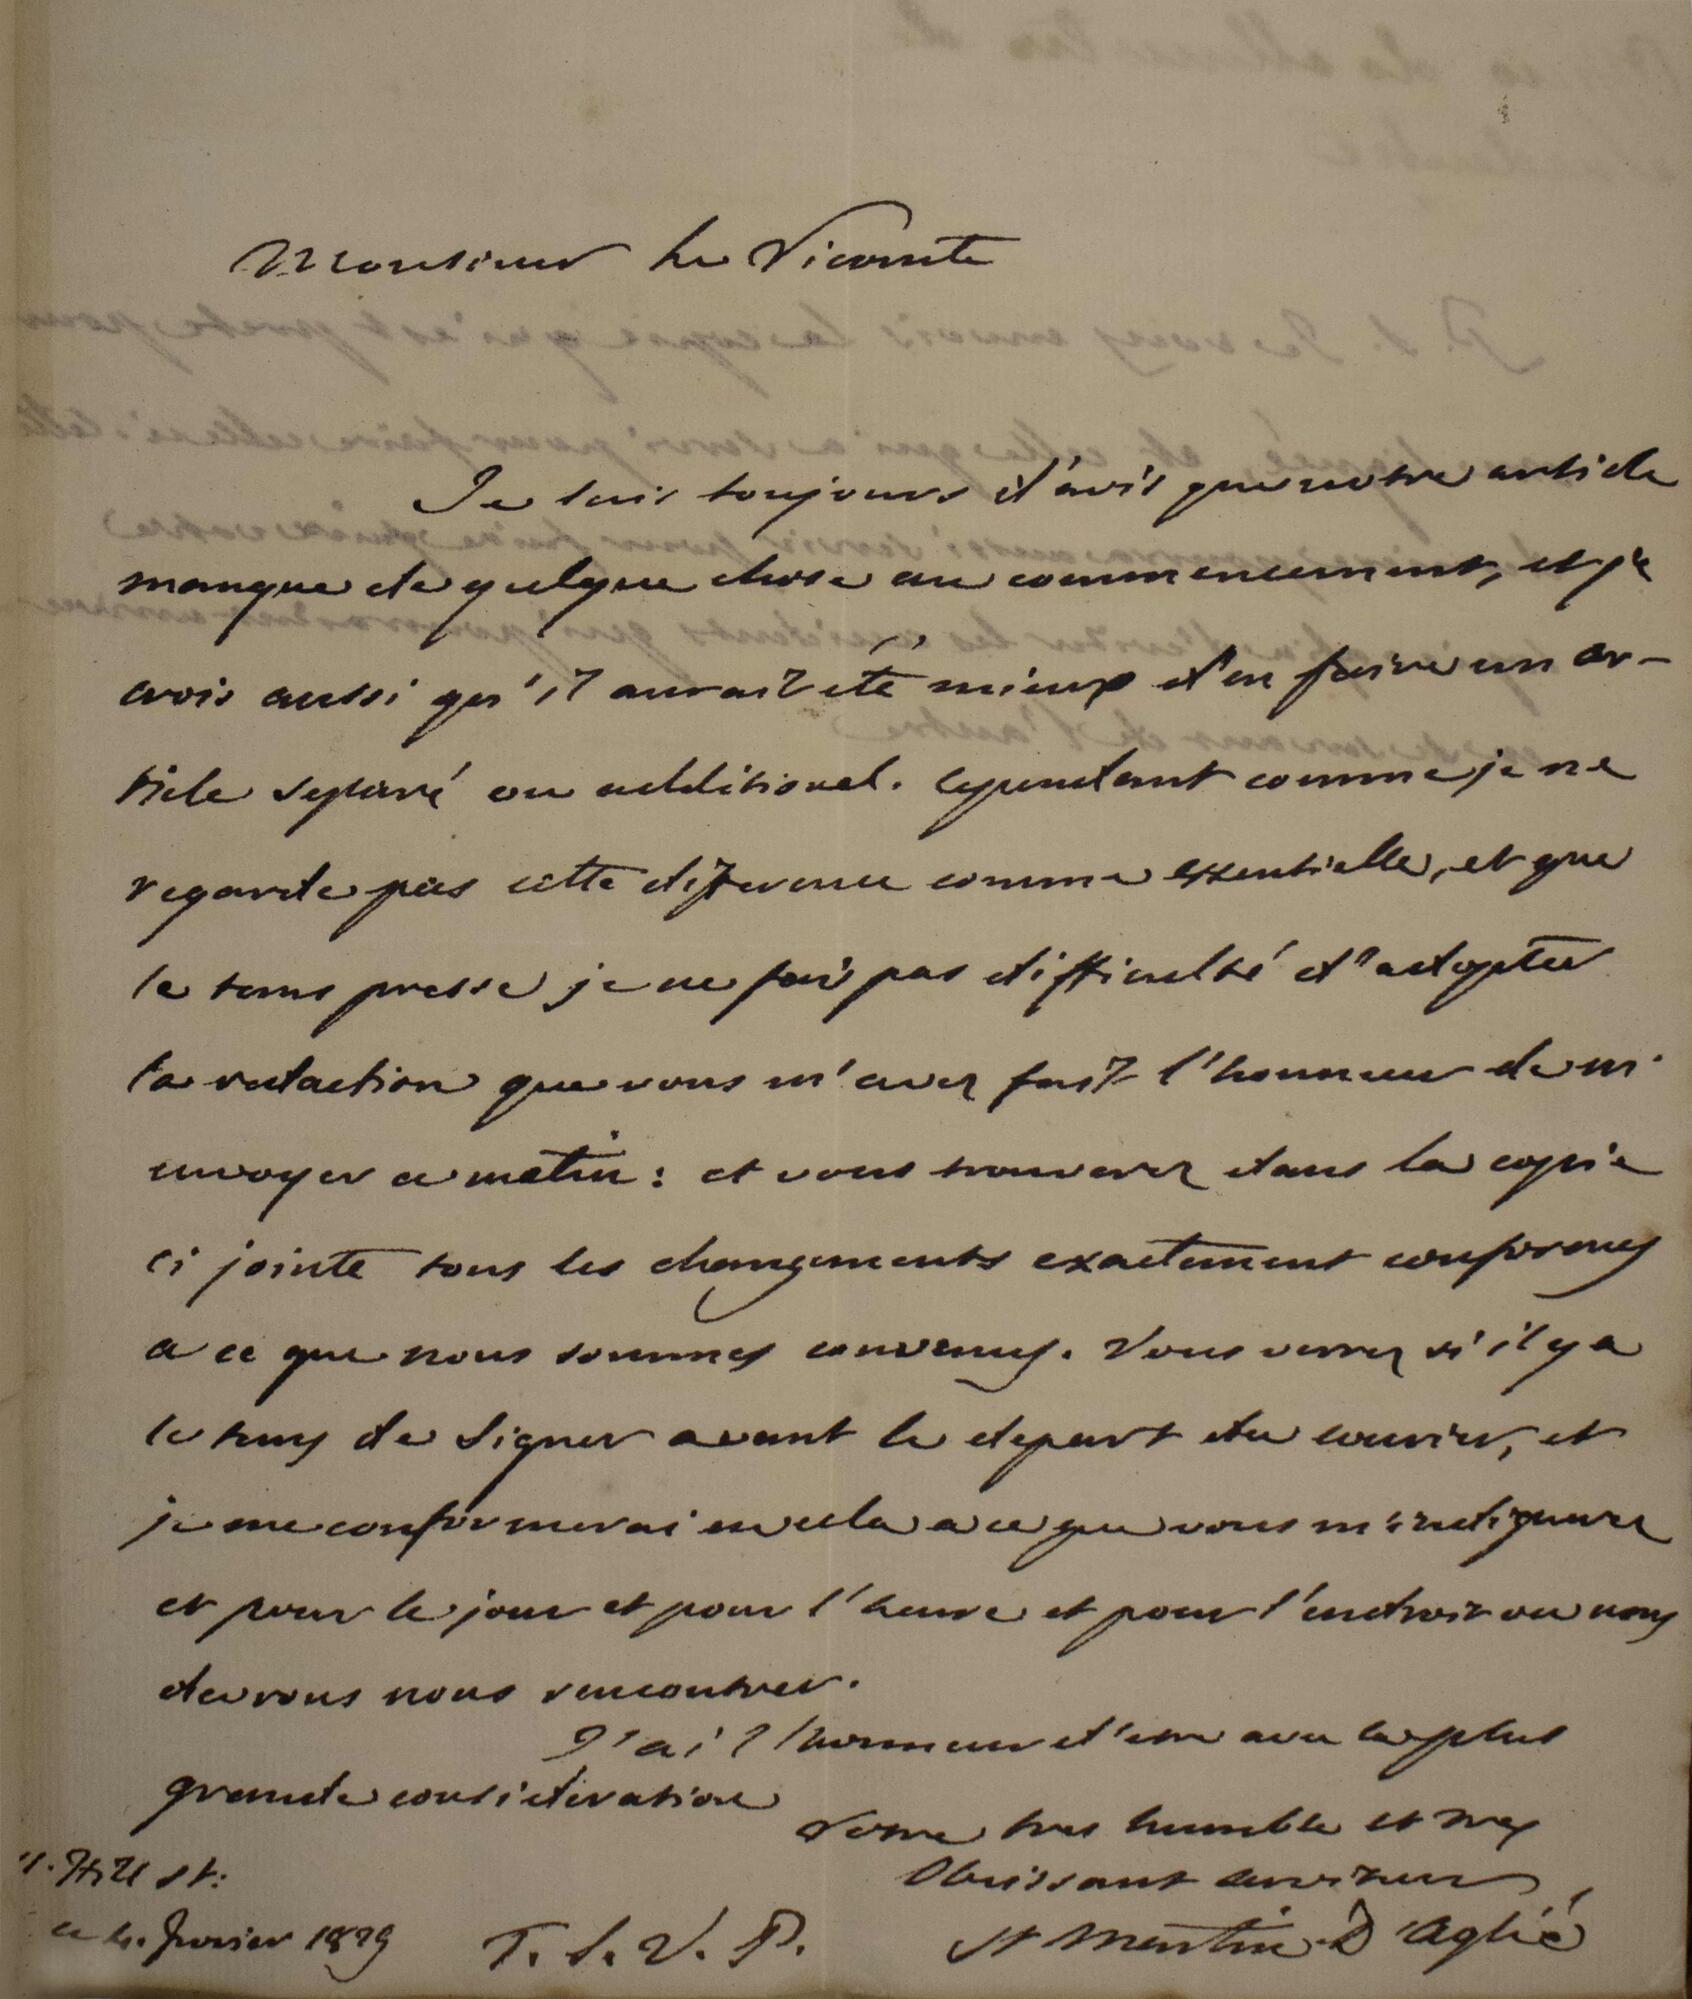 Monsieur le Vicomte
Je suis toujours d'avis que notre article
manque de quelque chose au commencement, et je
crois aussi qu'il aurait été mieux d'en faire un ar-
ticle séparé ou additional. Cependant comme je ne
regarde pas cette difference comme essentielle, et que
le tems presse je ne fais pas difficulté d'adopter
la redaction que vous m'avez fait l'honneur de m'
envoyer ce matin : et vous trouverez dans la copie
ci jointe tous les changements exactement conformes
a ce que nous sommes convenus. Vous verrez s'il y a
le tems de signer avant le depart du courier, et
je me conformerai en cela a ce que vous m'indiquerez
et pour le jour et pour l'heure et pour l'endroit ou nous
devons nous rencontrer.
J'ai l'honneur d'etre avec la plus
grande consideration
Votre tres humble et tres
Obeissant serviteur
St Martin D'Aglié
Hill St:
ce 4. fevrier 1829
T. S. V. P.